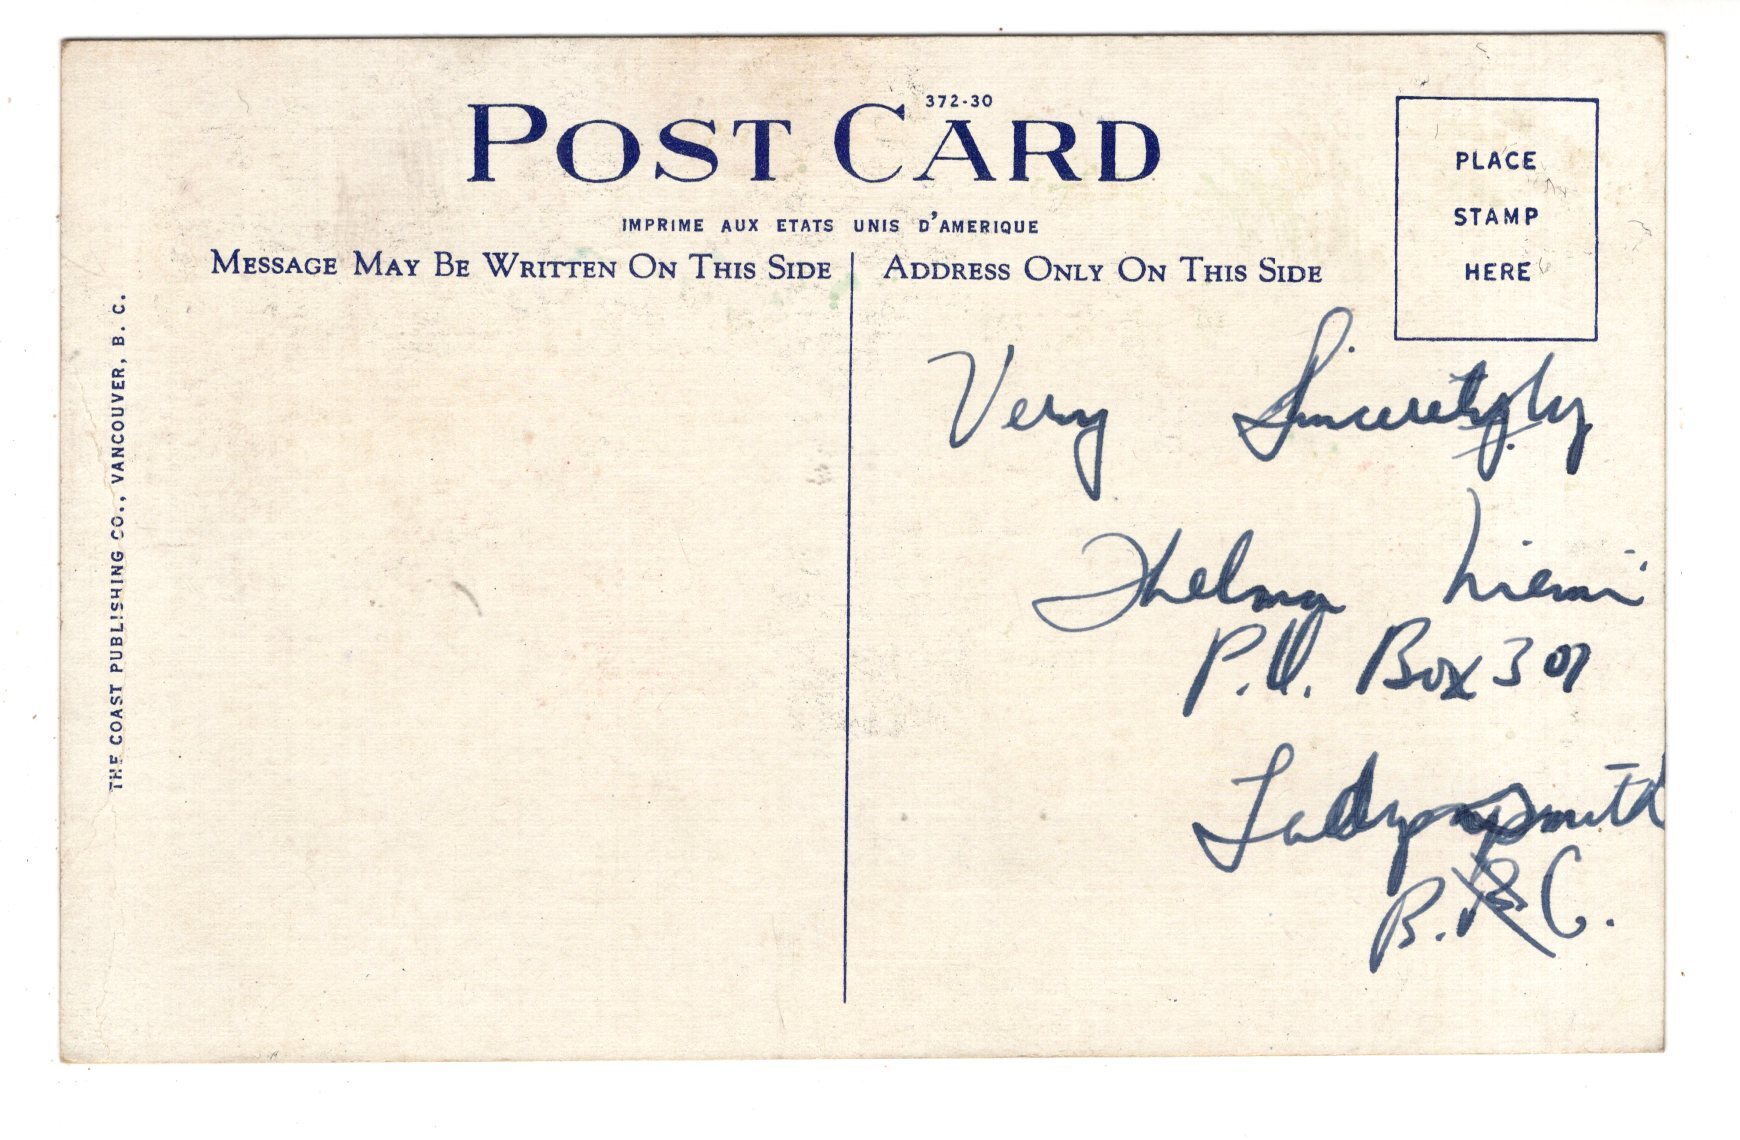 372-30
POST CARD
IMPRIME AUX ETATS UNIS D'AMERIQUE
MESSAGE MAY BE WRITTEN ON THIS SIDE
ADDRESS ONLY ON THIS SIDE
PLACE
STAMP
HERE
THE COAST PUBLISHING CO., VANCOUVER, B. C.
Very Sincerely
Thelma Niemi
P.O. Box 307
Ladysmith
B. C.